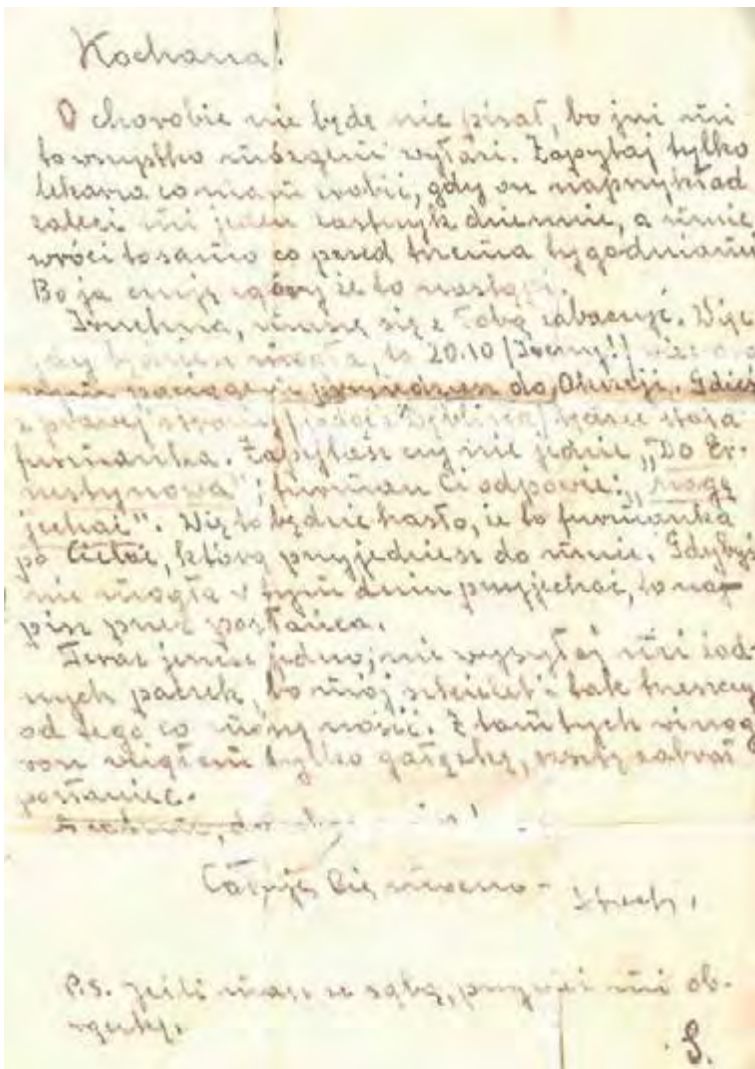 Kochana!
O chorobie nie będę nic pisał, bo już mi
to wszystko mózgiem wyłazi. Zapytaj tylko
lekarza co mam robić, gdy on naprzykład
zaleci mi jeden zastrzyk dziennie, a mnie
wróci to samo co przed trzema tygodniami
Bo ja czuję zgóry że to nastąpi.
muszę się z Tobą zobaczyć. Więc
mogła, to 20.10
pociągiem przyjedziesz do Okrzeji. Gdzieś
z prawej strony będzie stała
furmanka. Zapytasz czy nie jedzie „Do Er-
nestynowa"; furman Ci odpowie: „mogę
jechać". Więc to będzie hasło, że to furmanka
po Ciebie, którą przyjedziesz do mnie. Gdybyś
nie mogła w tym dniu przyjechać, to na-
pisz przez posłańca.
Teraz jeszcze jedno; nie wysyłaj mi żad-
nych paczek, bo mój szkielet i tak trzeszczy
od tego co musi nosić. Z tamtych winog
ron wziąłem tylko gałązkę, resztę zabrał
posłaniec.
Całuję Cię mocno -
P.S. Jeśli masz ze sobą, przywieź mi ob-
S.